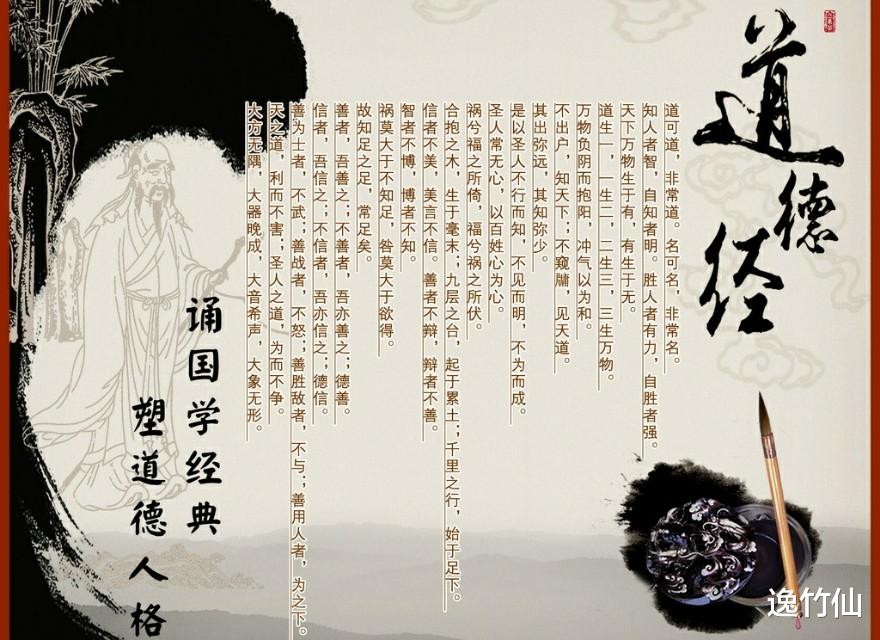 道德经
道可道，非常道。名可名，非常名。
知人者智，自知者明。胜人者有力，自胜者强。
天下万物生于有，有生于无。
道生一，一生二，二生三，三生万物。
万物负阴而抱阳，冲气以为和。
不出户，知天下；不窥牖，见天道。
其出弥远，其知弥少。
是以圣人不行而知，不见而明，不为而成。
圣人常无心，以百姓心为心。
祸兮福之所倚，福兮祸之所伏。
合抱之木，生于毫末；九层之台，起于累土；千里之行，始于足下。
信者不美，美言不信。善者不辩，辩者不善。
智者不博，博者不知。
祸莫大于不知足，咎莫大于欲得。
故知足之足，常足矣。
善者，吾善之；不善者，吾亦善之；德善。
信者，吾信之；不信者，吾亦信之；德信。
善为士者，不武；善战者，不怒；善胜敌者，不与；善用人者，为之下。
天之道，利而不害；圣人之道，为而不争。
大方无隅，大器晚成，大音希声，大象无形。
诵国学经典
塑道德人格
逸竹仙